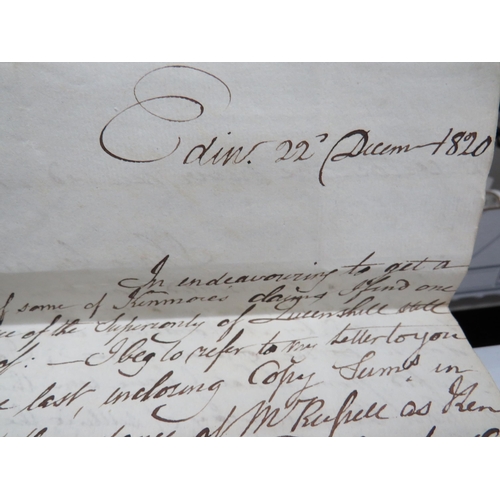 Edinr. 22d Decem 1820
In endeavouring to get a
of some of Kenmores doing find one
of the Superiority of Queenshill still
:— I beg to refer to my letter to you
last, inclosing Copy Sums. in
of Mr Russell as Ken